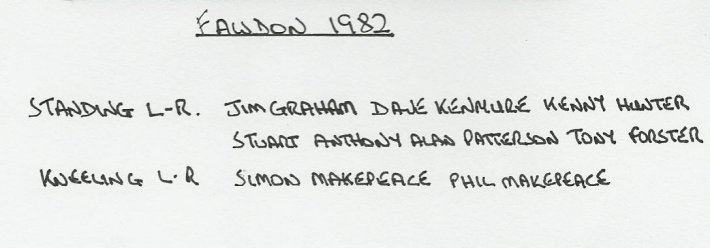 FAWDON 1982
STANDING L-R. JIM GRAHAM DAVE KENMURE KENNY HUNTER
STUART ANTHONY ALAN PATTERSON TONY FORSTER
KNEELING L.R SIMON MAKEPEACE PHIL MAKEPEACE